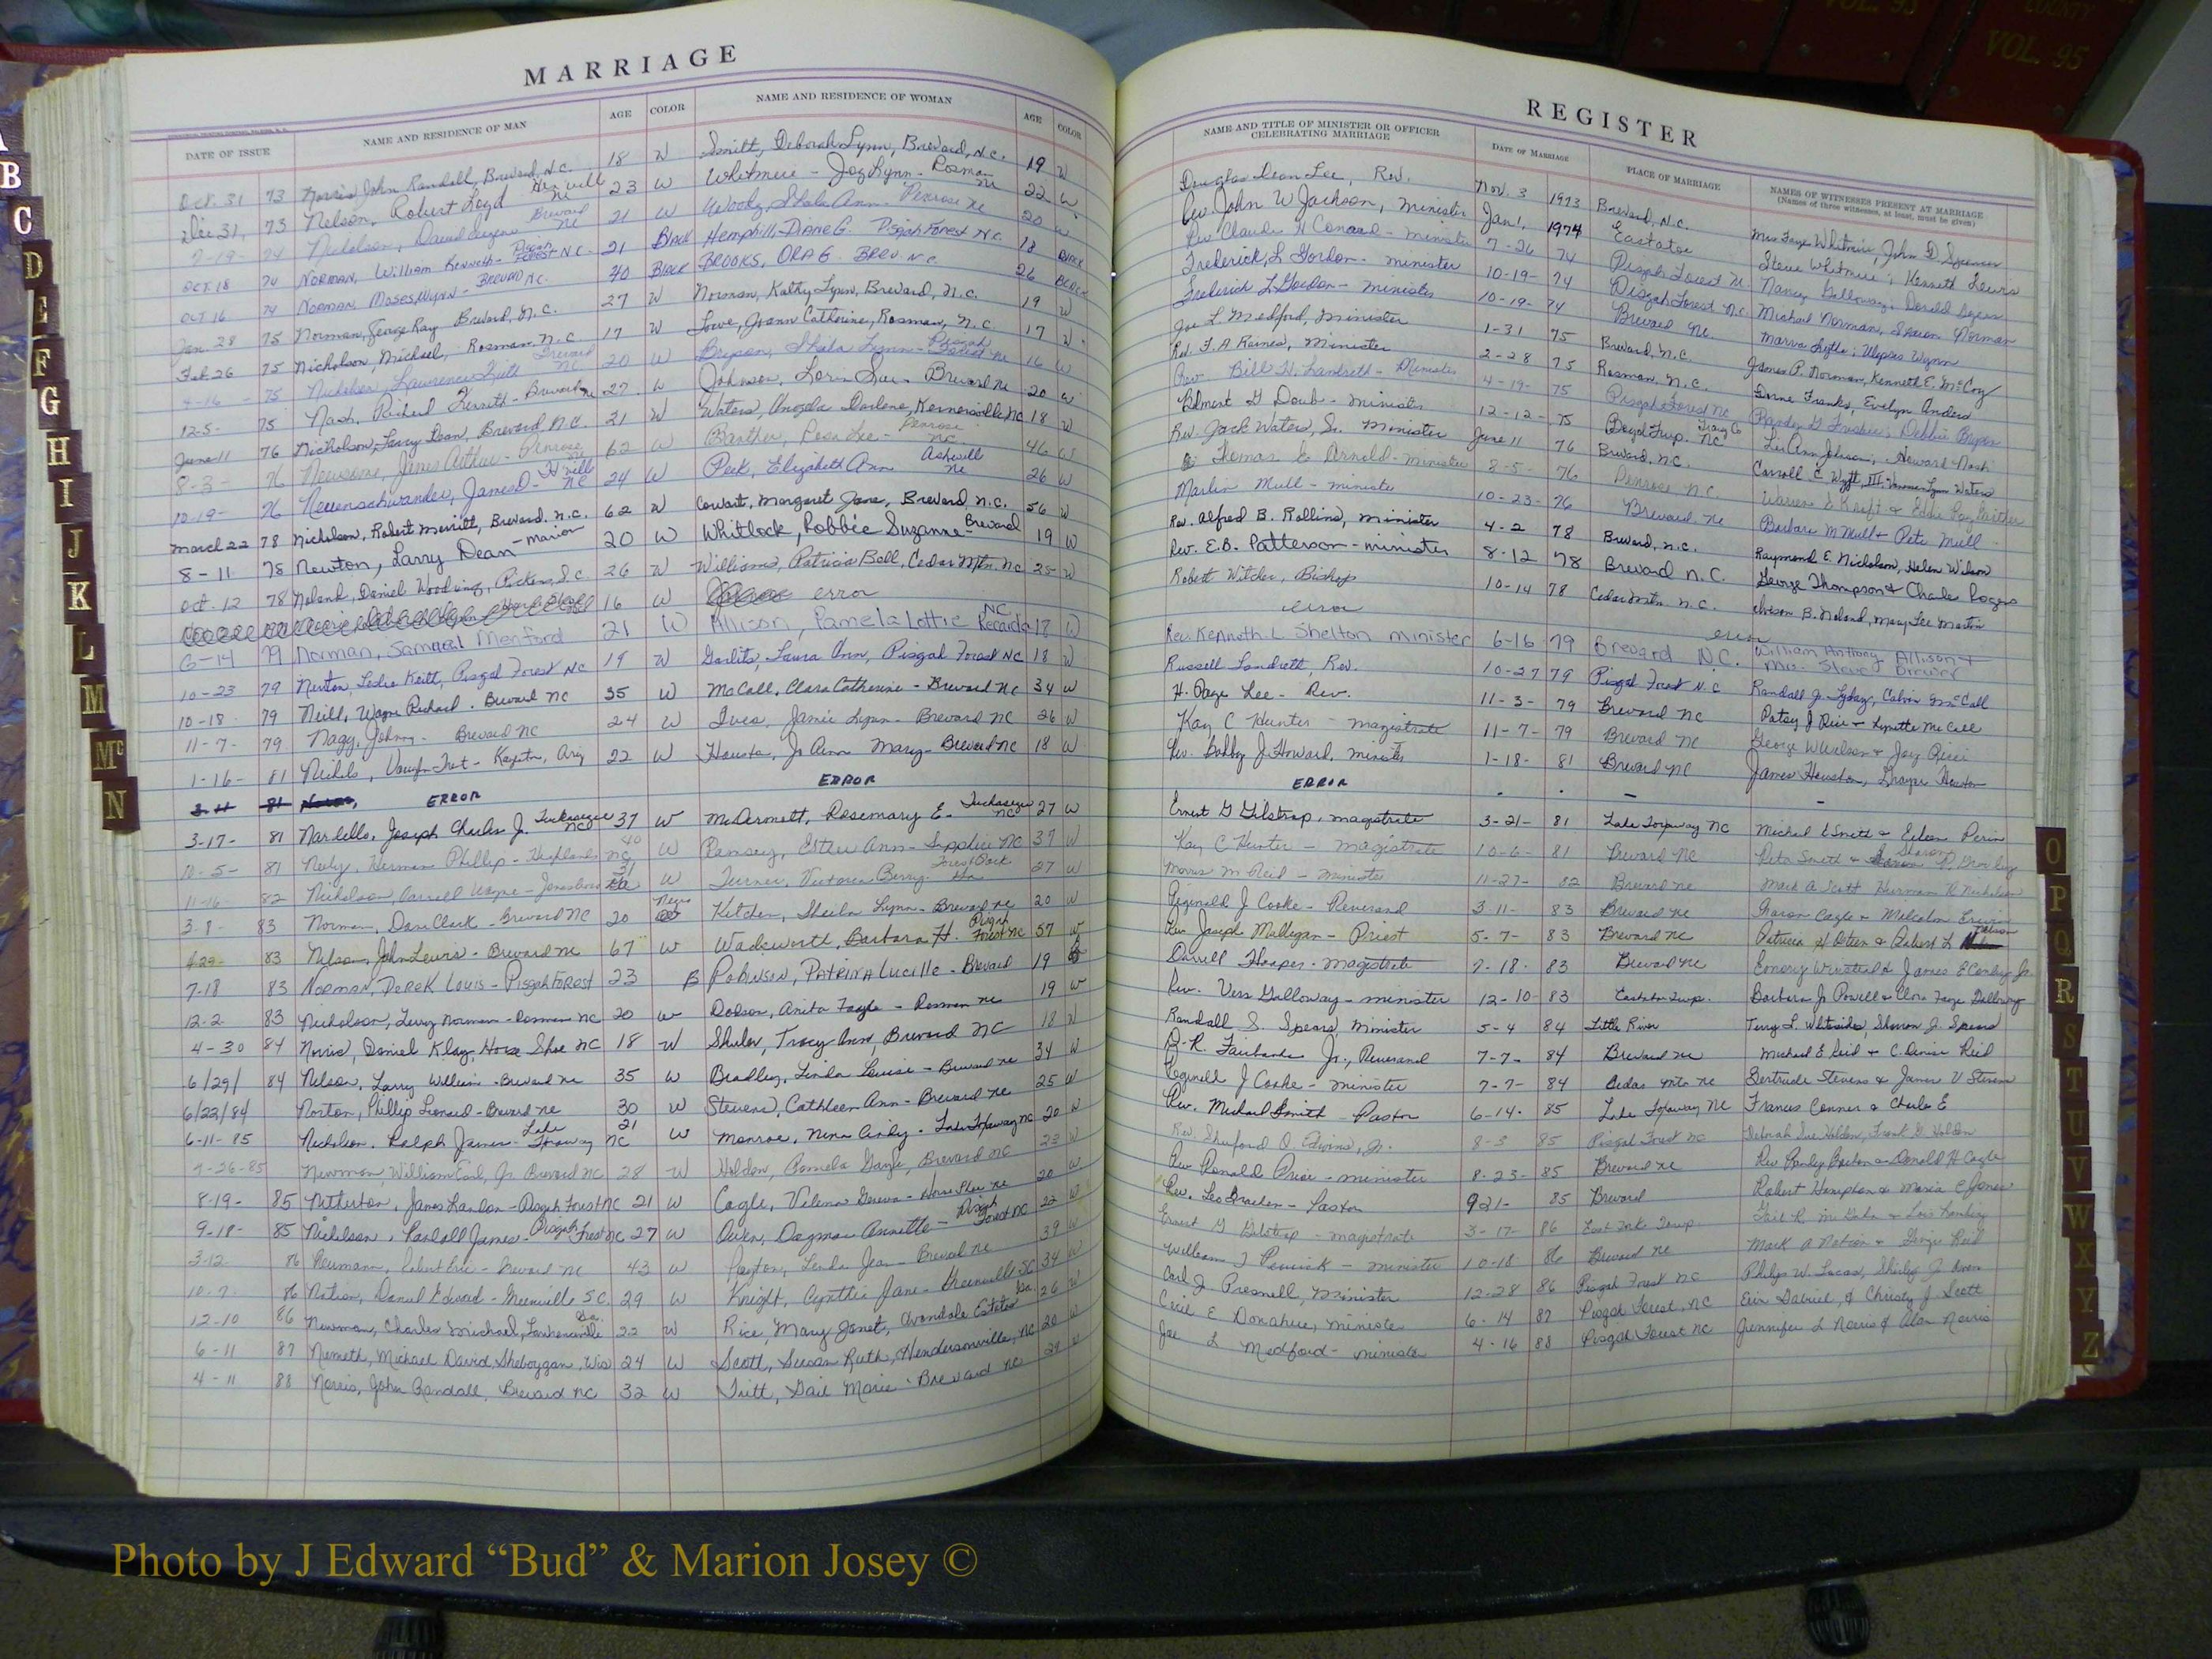 COUNTY
VOL. 95
VOL. 95
MARRIAGE
DATE OF ISSUE NAME AND RESIDENCE OF MAN AGE COLOR NAME AND RESIDENCE OF WOMAN AGE COLOR
Oct. 31 73 Norris, John Randall, Brevard, N.C. 18 W Smith, Deborah Lynn, Brevard, N.C. 19 W
Dec 31, 73 Nelson, Robert Loyd 23 W Whitmire - Joy Lynn - Rosman NC 22 W
Nicholson, David Eugene Brevard NC 21 W Woody, Shela Ann - Penrose NC 20 W
Oct 18 74 Norman, William Kenneth - Pisgah Forest N.C. 21 Black Hemphill, Diane G. Pisgah Forest N.C. 18 Black
Oct 16 74 Norman, Moses, Wynn - Brevard N.C. 40 Black Brooks, Ora G. Brev. N.C. 26 Black
Jan. 28 75 Norman, George Ray Brevard, N.C. 27 W Norman, Kathy Lynn, Brevard, N.C. 19 W
Feb. 26 75 Nicholson, Michael, Rosman, N.C. 17 W Lowe, Joann Catherine, Rosman, N.C. 17 W
4-16 - 75 Nicholson, Lawrence Brevard NC 20 W Bryson, Shela Lynn - Pisgah Forest NC 16 W
12-5- 75 Nash, Richard Kenneth - Brevard NC 27 W Johnson, Loris Sue - Brevard NC 20 W
June 11 76 Nicholson, Larry Dean, Brevard, N.C. 21 W Waters, Angela Darlene, Kernersville, NC 18 W
8-3- 76 James Arthur - Penrose NC 62 W Rosa Lee - Penrose NC 46 W
10-19- 76 Neuenschwander, James D - NC 24 W Peek, Elizabeth Ann NC 26 W
March 22 78 Nicholson, Robert Merritt, Brevard, N.C. 62 W Cowart, Margaret Jane, Brevard N.C. 56 W
8-11 78 Newton, Larry Dean - Marion 20 W Whitlock, Robbie Suzanne - Brevard 19 W
Oct. 12 78 Noland, Daniel Wooding, Pickens, S.C. 26 W Williams, Patricia Bell, Cedar Mtn. NC 25 W
16 W error
6-14 79 Norman, Samuel Monford 21 W Allison, Pamela Lottie NC 18 W
10-23 79 Newton, Leslie Keith, Pisgah Forest NC 19 W Garlits, Laura Ann, Pisgah Forest NC 18 W
10-18 79 Neill, Wayne Richard - Brevard NC 35 W McCall, Clara Catherine - Brevard NC 34 W
11-7- 79 Nagy, Johnny - Brevard NC 24 W Ives, Jamie Lynn - Brevard NC 26 W
1-16- 81 Nichols, Ariz 22 W Houston, Jo Ann Mary - Brevard NC 18 W
3-11 81 ERROR ERROR
3-17- 81 Nardello, Joseph Charles J. Tuckasegee NC 37 W McDermott, Rosemary E. Tuckasegee NC 27 W
11-5- 81 Neely, Herman Phillip - Highlands NC 40 W Ramsey, Esther Ann - Sapphire NC 37 W
11-16 82 Nicholson, Carroll Wayne - Jonesboro Ga 31 W Turner, Victoria Berry - Forest Park Ga 27 W
3-8- 83 Norman, Dane Clark - Brevard NC 20 Negro Kitchen, Sheila Lynn - Brevard NC 20 W
83 Nelson, John Lewis - Brevard NC 67 W Wadsworth, Barbara H. Pisgah Forest NC 57 W
7-18 83 Norman, Derek Louis - Pisgah Forest 23 B Robinson, Patrina Lucille - Brevard 19 B
12-2 83 Nicholson, Larry Norman - Rosman NC 20 W Dodson, Anita Fayle - Rosman NC 19 W
4-30 84 Norris, Daniel Klay, Horse Shoe NC 18 W Shuler, Tracy Ann, Brevard NC 18 W
6/29/ 84 Nelson, Larry William - Brevard NC 35 W Bradley, Linda Louise - Brevard NC 34 W
6/22/84 Norton, Phillip Leonard - Brevard NC 30 W Stevens, Cathleen Ann - Brevard NC 25 W
6-11-85 Nicholson, Ralph James - Lake Toxaway NC 21 W Monroe, Nina Cindy - Lake Toxaway NC 20 W
9-26-85 Newman, William Earl, Jr. Brevard NC 28 W Holden, Pamela Gayle, Brevard NC 23 W
8-19- 85 Netterton, James Landon - Pisgah Forest NC 21 W Cagle, Velena Geneva - Horse Shoe NC 20 W
9-18- 85 Nicholson, Randall James - Pisgah Forest NC 27 W Owen, Dagmar Annette - Pisgah Forest NC 22 W
3-12 86 Neumann, Robert Eric - Brevard NC 43 W Payton, Linda Jean - Brevard NC 39 W
10-7- 86 Nation, Daniel Edward - Greenville S.C. 29 W Knight, Cynthia Jane - Greenville SC 34 W
12-10 86 Newman, Charles Michael, Lawrenceville Ga. 22 W Rice, Mary Janet, Avondale Estates Ga. 26 W
6-11 87 Nemeth, Michael David, Sheboygan, Wis 24 W Scott, Susan Ruth, Hendersonville, NC 20 W
4-11 88 Norris, John Randall, Brevard NC 32 W Tritt, Gail Marie - Brevard NC 29 W
REGISTER
NAME AND TITLE OF MINISTER OR OFFICER CELEBRATING MARRIAGE DATE OF MARRIAGE PLACE OF MARRIAGE NAMES OF WITNESSES PRESENT AT MARRIAGE
(Names of three witnesses, at least, must be given)
Douglas Dean Lee, Rev. Nov. 3 1973 Brevard, N.C. Mrs Faye Whitmire, John D. Spencer
Rev. John W Jackson, Minister Jan 1, 1974 Eastatoe Steve Whitmire; Kenneth Lewis
Rev Claude H Conard - minister 7-26 74 Pisgah Forest NC Nancy Galloway; Donald
Frederick L Gordon - minister 10-19- 74 Pisgah Forest N.C. Michael Norman, Sharon Norman
Frederick L Gordon - minister 10-19- 74 Brevard NC. Marva Lytle; Ulysses Wynn
Joe L Medford, Minister 1-31 75 Brevard, N.C. James P. Norman, Kenneth E. McCoy
Rev. F. A. Raines, Minister 2-28 75 Rosman, N.C. Donna Franks, Evelyn Anders
Rev. Bill H. Landreth - Minister 4-19- 75 Pisgah Forest NC Debbie Bryson
Belmont G Doub - minister 12-12- 75 Boyd Twp. NC Lee Ann Johnson, Howard Nash
Rev. Jack Waters, Sr. Minister June 11 76 Brevard, N.C. Carroll C. Wyatt, III Lynn Waters
Thomas E Arnold - minister 8-5- 76 Penrose N.C.
Marlin Mull - minister 10-23- 76 Brevard NC Barbara M Mull & Pete Mull
Rev. Alfred B. Rollins, minister 4-2 78 Brevard, N.C. Raymond E. Nicholson, Helen Wilson
Rev. E.B. Patterson - minister 8-12 78 Brevard N.C. George Thompson & Charles Rogers
Robert Witcher, Bishop 10-14 78 Cedar Mtn. N.C. B. Noland, Mary Lee Martin
error error
Rev. Kenneth L Shelton minister 6-16 79 Brevard N.C. William Anthony Allison + Mrs. Steve Brewer
Russell Landreth, Rev. 10-27 79 Pisgah Forest N.C Randall J. Calvin McCall
H. Page Lee - Rev. 11-3- 79 Brevard NC Patsy J Rice & Lynette McCall
Kay C Hunter - magistrate 11-7- 79 Brevard NC George W
Rev. Bobby J. Howard, minister 1-18- 81 Brevard NC James Houston, Houston
ERROR - . - -
Ernest G Gilstrap, magistrate 3-21- 81 Lake Toxaway NC Michael E Smith & Eileen Perin
Kay C Hunter - magistrate 10-6- 81 Brevard NC Pete Smith & Sharon
Morris M Reid - minister 11-27- 82 Brevard NC Mark A Scott Herman R Nicholson
Reginald J Cooke - Reverand 3-11- 83 Brevard NC Sharon Cagle & Malcolm
Rev Joseph Mulligan - Priest 5-7- 83 Brevard NC Patricia H Osteen & Robert L Nelson
Darrell Hooper - magistrate 7-18- 83 Brevard NC Emory Winstead & James E Conley Jr.
Rev. Vern Galloway - minister 12-10-83 Eastatoe Twp. Barbara Jo Powell & Clora Faye Galloway
Randall S. Spears, Minister 5-4 84 Little River Terry L. Whiteside, Sharron J. Spears
B. R. Fairbanks Jr., Reverand 7-7- 84 Brevard NC Michael E. Reid & C. Denise Reid
Reginald J Cooke - minister 7-7- 84 Cedar Mtn NC Gertrude Stevens & James V Stevens
Rev. Michael Smith - Pastor 6-14- 85 Lake Toxaway NC Frances Conner & Charles E
Rev Shuford O. Edwins, Jr. 8-3 85 Pisgah Forest NC Deborah Sue Holden, Frank G. Holden
Rev Ronald Price - minister 8-23-85 Brevard NC Rev & Donald H Cagle
Rev. Leo - Pastor 9 21- 85 Brevard Robert Hampton & Maria C Jones
Ernest G Gilstrap - magistrate 3-17- 86 East Fork Twp.
William T - minister 10-18 86 Brevard NC Mark A Nation & George Reid
Carl J. Presnell, Minister 12-28 86 Pisgah Forest NC Philip W. Lucas, Shirley J. Owen
Cecil E Donahue, minister 6-14 87 Pisgah Forest, NC Erin Gabriel, & Christy J. Scott
Joe L Medford - minister 4-16 88 Pisgah Forest NC Jennifer L Norris & Alan Norris
A
B
C
D
E
F
G
H
I
J
K
L
M
Mc
N
O
P
Q
R
S
T
U
V
W
X
Y
Z
Photo by J Edward “Bud” & Marion Josey ©